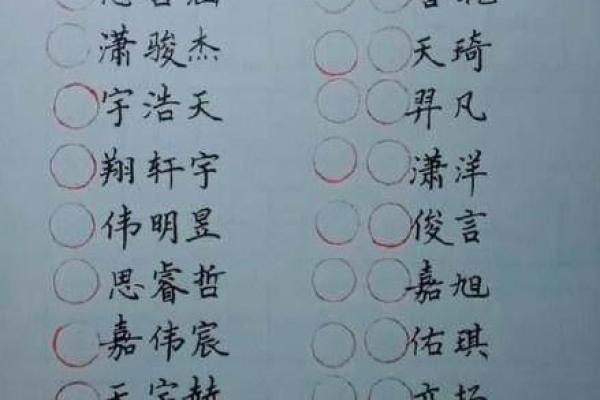 潇骏杰
天琦
宇浩天
羿凡
翔轩宇
潇洋
伟明昱
俊言
思睿哲
嘉旭
嘉伟宸
佑琪